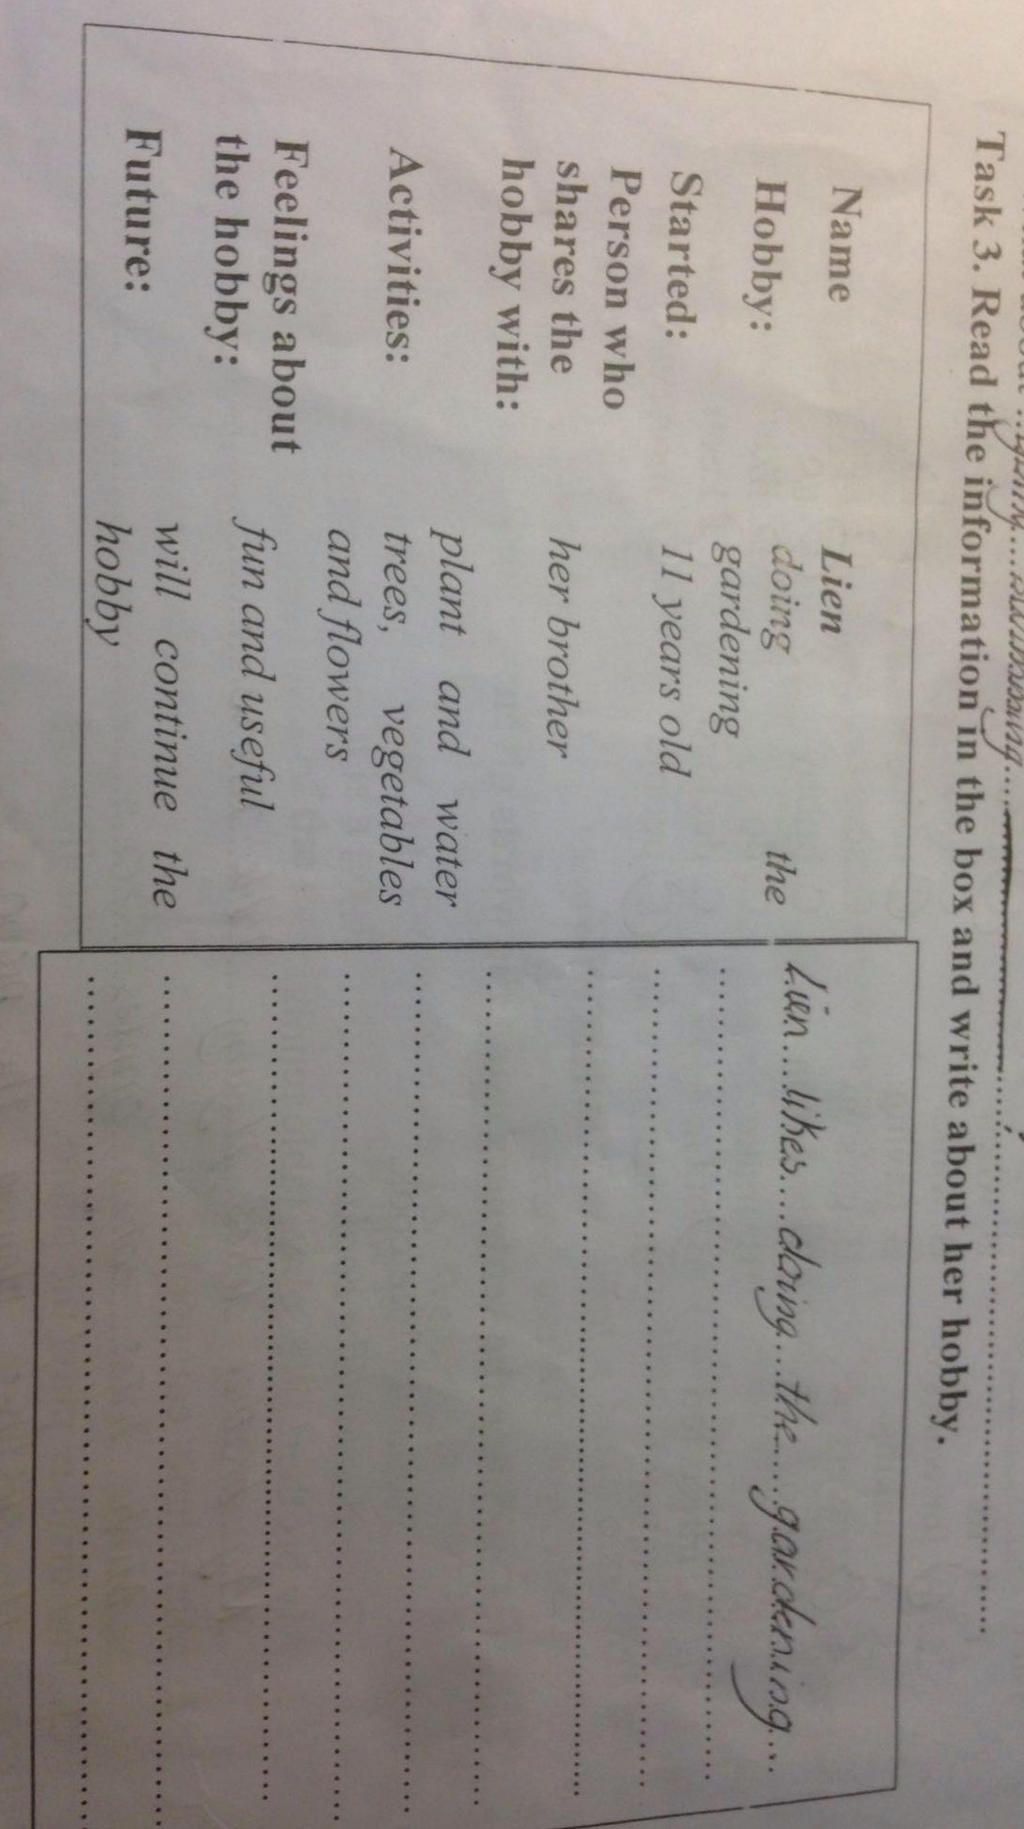 Task 3. Read the information in the box and write about her hobby.
Name Lien
Hobby: doing the
gardening
Started: 11 years old
Person who
shares the her brother
hobby with:
plant and water
Activities: trees, vegetables
and flowers
Feelings about
the hobby: fun and useful
Future: will continue the
hobby
Lien...likes...doing...the...gardening...